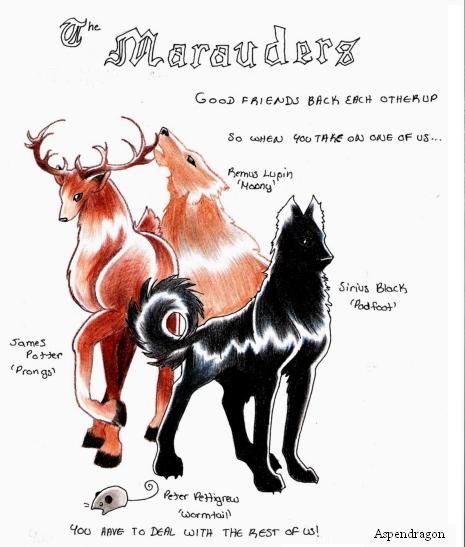 The Marauders
GOOD FRIENDS BACK EACH OTHER UP
SO WHEN YOU TAKE ON ONE OF US...
Remus Lupin
'Moony'
Sirius Black
'Padfoot'
James
Potter
'Prongs'
Peter Pettigrew
'Wormtail'
YOU HAVE TO DEAL WITH THE REST OF US!
Aspendragon